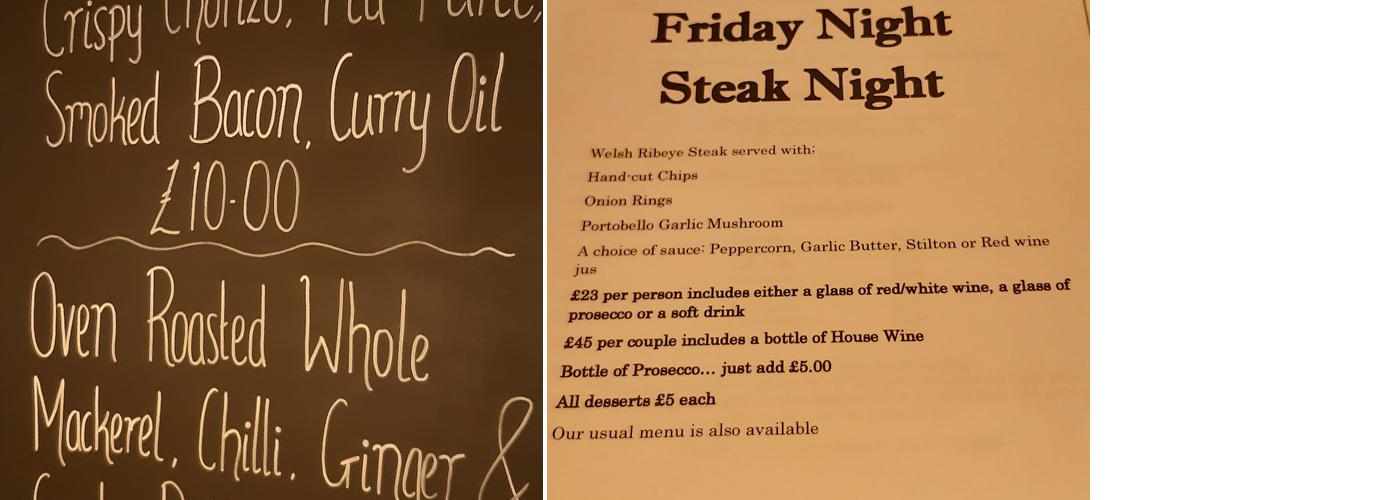 Crispy Chorizo, Pea Puree,
Smoked Bacon, Curry Oil
£10.00
Oven Roasted Whole
Mackerel, Chilli, Ginger &
Friday Night
Steak Night
Welsh Ribeye Steak served with;
Hand-cut Chips
Onion Rings
Portobello Garlic Mushroom
A choice of sauce: Peppercorn, Garlic Butter, Stilton or Red wine
jus
£23 per person includes either a glass of red/white wine, a glass of
prosecco or a soft drink
£45 per couple includes a bottle of House Wine
Bottle of Prosecco... just add £5.00
All desserts £5 each
Our usual menu is also available